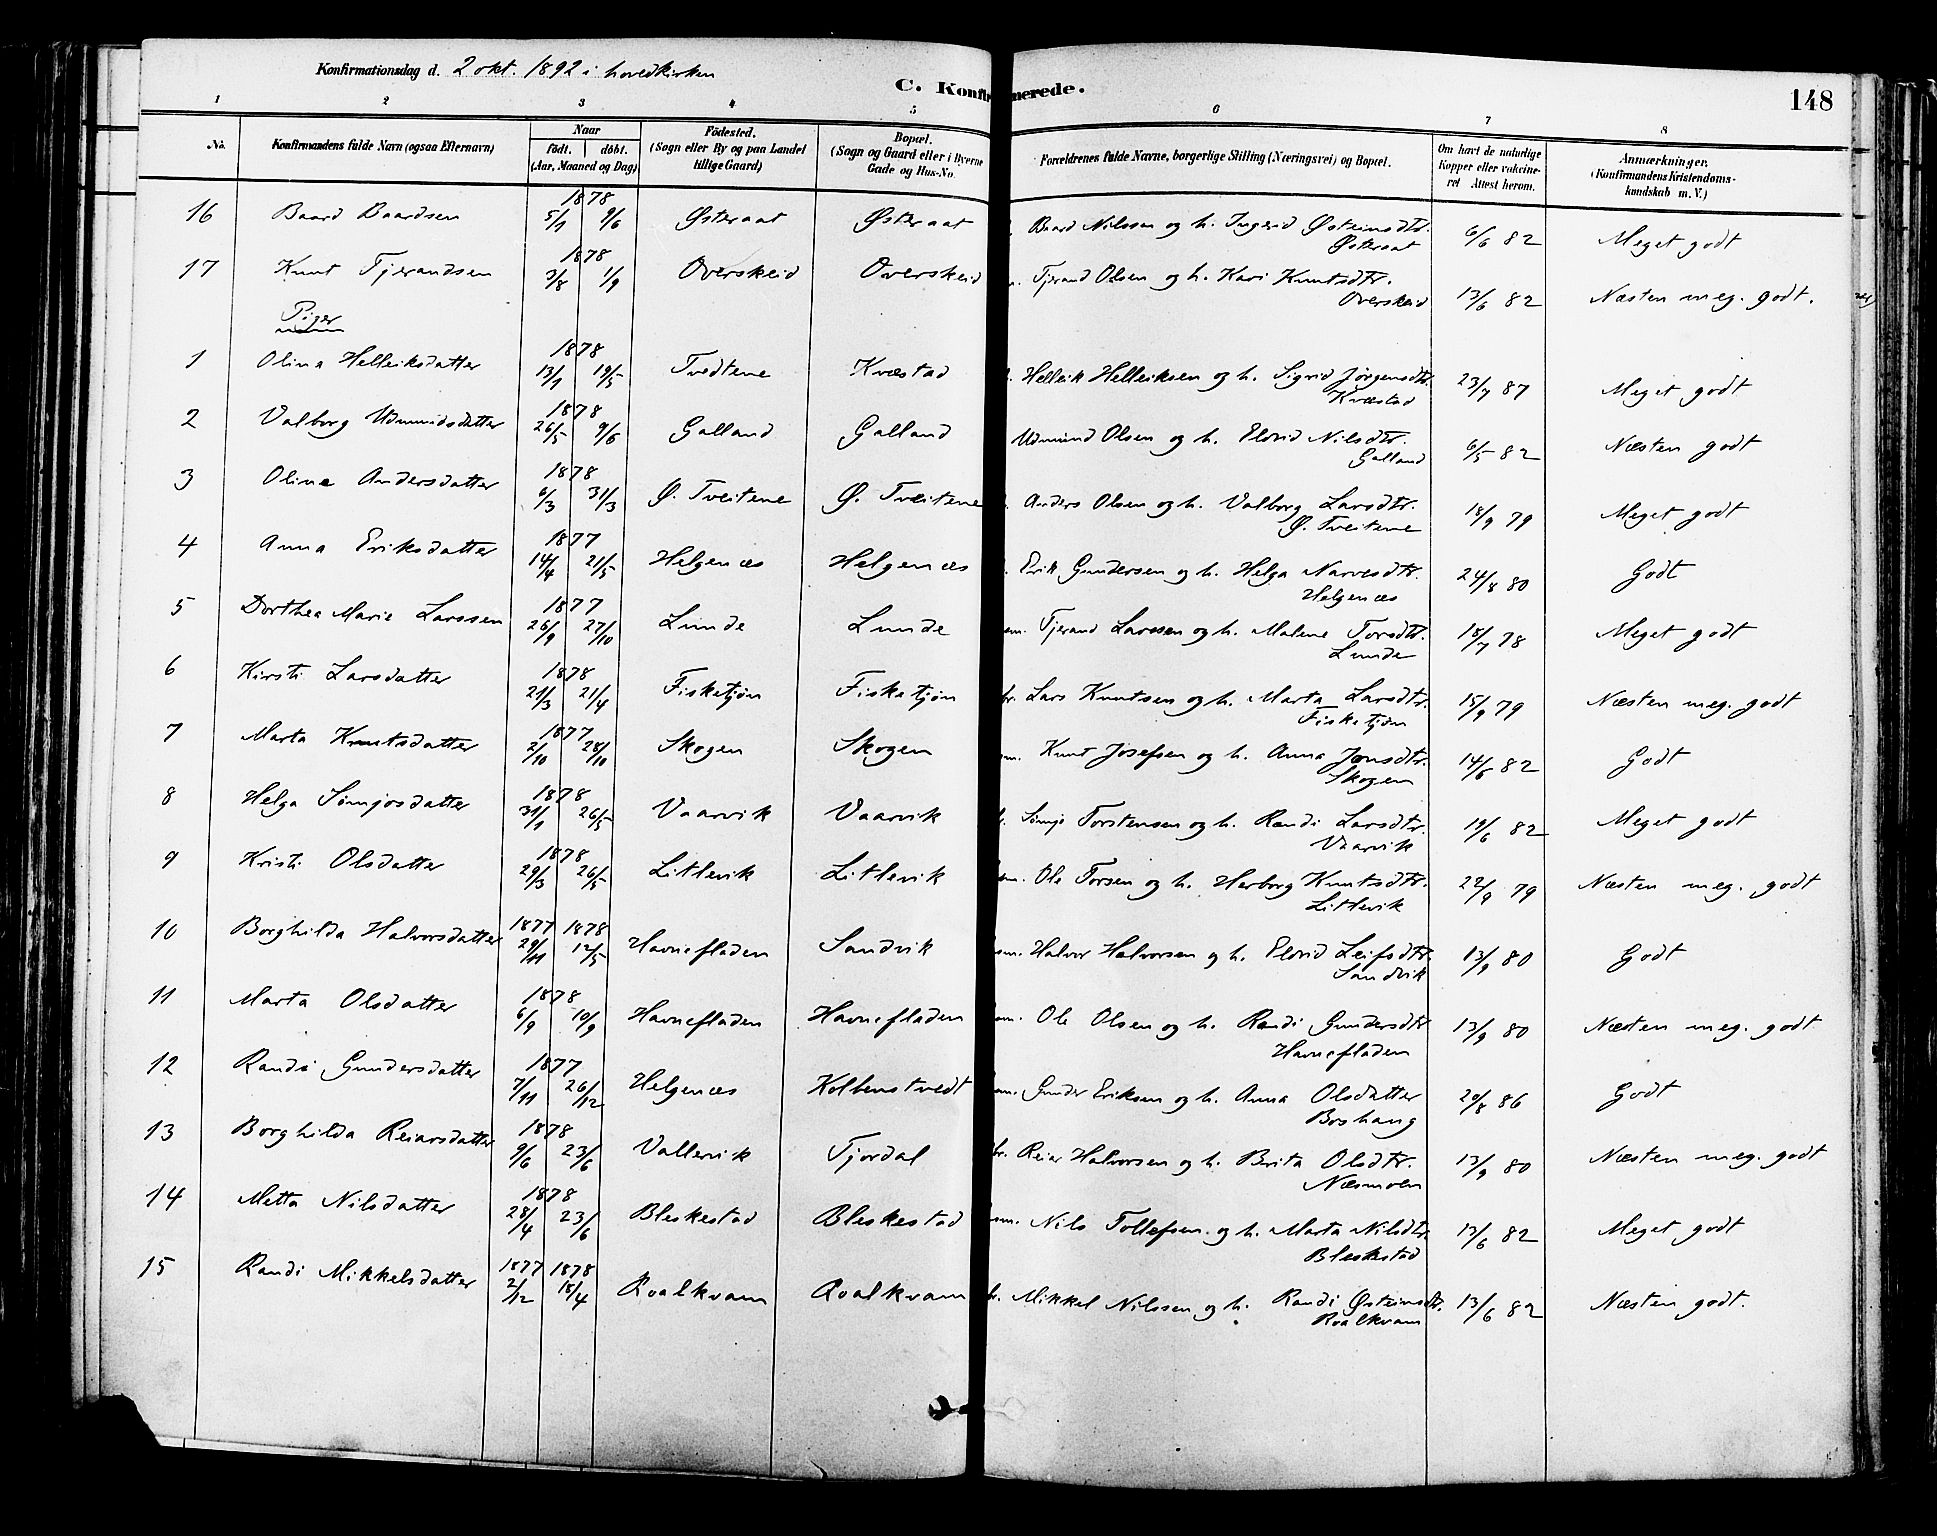 Konfirmationsdag d. 2 okt. 1892 i hovedkirken
C. Konfirmerede.
148
1 2 3 4 5 6 7 8
No. Konfirmandens fulde Navn (ogsaa Efternavn) Naar födt. döbt. (Aar, Maaned og Dag) Födested. (Sogn eller By og paa Landet tillige Gaard) Bopæl. (Sogn og Gaard eller i Byerne Gade og Hus-No. Forældrenes fulde Navne, borgerlige Stilling (Næringsvei) og Bopæl. Om havt de naturlige Kopper eller vakcineret Attest herom. Anmærkninger. (Konfirmandens Kristendomskundskab m. V.)
1878
16 Baard Baardsen 5/1 9/6 Østeraat Østeraat Baard Nilssen og h. Ingerid Østeinsdtr. Østeraat 6/6 82 Meget godt
1878
17 Knut Tjerandsen 3/8 1/9 Overskeid Overskeid Tjerand Olsen og h. Kari Knutsdtr. Overskeid 13/6 82 Næsten meg. godt.
Piger
1878
1 Olina Helleiksdatter 13/1 19/5 Tvedtene Kvæstad Helleik Helleiksen og h. Sigrid Jørgensdtr. Kvæstad 23/7 87 Meget godt
1878
2 Valborg Udmundsdatter 26/5 9/6 Galland Galland Udmund Olsen og h. Eldrid Nilsdtr. Galland 6/5 82 Næsten godt
1878
3 Oline Andersdatter 6/3 31/3 Ø. Tveitene Ø. Tveitene Anders Olsen og h. Valborg Larsdtr. Ø. Tveitene 18/9 79 Meget godt
1877
4 Anna Eriksdatter 14/4 21/5 Helgenæs Helgenæs Erik Gundersen og h. Helga Narvesdtr. Helgenæs 24/8 80 Godt
1877
5 Dorthea Marie Larssen 26/9 27/10 Lunde Lunde sm. Tjerand Larssen og h. Malene Torsdtr. Lunde 18/7 78 Meget godt
1878
6 Kirsti Larsdatter 21/3 21/4 Fisketjøn Fisketjøn br. Lars Knutsen og h. Marta Larsdtr. Fisketjøn 15/9 79 Næsten meg. godt
1877
7 Marta Knutsdatter 2/10 28/10 Skogen Skogen sm. Knut Josefsen og h. Anna Jonsdtr. Skogen 14/6 82 Godt
1878
8 Helga Sømjosdatter 31/1 26/5 Vaarvik Vaarvik Sømjo Torstensen og h. Randi Larsdtr. Vaarvik 19/6 82 Meget godt
1878
9 Kristi Olsdatter 29/3 26/5 Litlevik Litlevik sm. Ole Torsen og h. Herborg Knutsdtr. Litlevik 22/9 79 Næsten meg. godt
1877 1878
10 Borghilda Halvorsdatter 29/11 12/5 Havnefladen Sandvik sm. Halvor Halvorsen og h. Eldrid Leifsdtr. Sandvik 13/9 80 Godt
1878
11 Marta Olsdatter 6/9 10/9 Havnefladen Havnefladen sm. Ole Olsen og h. Randi Gundersdtr Havnefladen 13/9 80 Næsten meg. godt
1877
12 Randi Gundersdatter 7/11 26/12 Helgenæs Kolbenstvedt sm. Gunder Eriksen og h. Anna Olsdatter Boshaug 20/8 86 Godt
1878
13 Borghilda Reiarsdatter 9/6 23/6 Vallevik Tjordal br. Reier Halvorsen og h. Berita Olsdtr. Næsmoen 13/9 80 Næsten meg. godt
1878
14 Metta Nilsdatter 28/4 23/6 Bleskestad Bleskestad sm. Nils Tollefsen og h. Marta Nilsdtr Bleskestad 13/6 82 Meget godt
1877 1878
15 Randi Mikkelsdatter 2/12 18/4 Roalkvam Roalkvam br. Mikkel Nilssen og h. Randi Østeinsdtr. Roalkvam 13/6 82 Næsten godt.